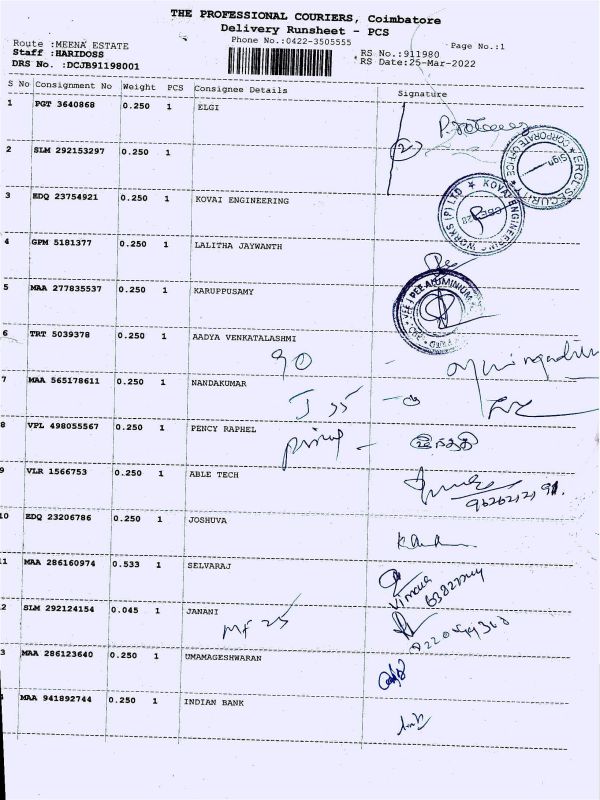 THE PROFESSIONAL COURIERS, Coimbatore
Delivery Runsheet - PCS
Phone No.:0422-3505555
Route :MEENA ESTATE
Staff :HARIDOSS
DRS No. :DCJB91198001
RS No.:911980
RS Date:25-Mar-2022
Page No.:1
S No Consignment No Weight PCS Consignee Details Signature
1 PGT 3640868 0.250 1 ELGI
2 SLM 292153297 0.250 1
2
3 EDQ 23754921 0.250 1 KOVAI ENGINEERING
ERGI SECURITY ★ CORPORATE OFFICE ★
Sign
KOVAI ENGINEERING WORKS (P) LTD ★
4 GPM 5181377 0.250 1 LALITHA JAYWANTH
5 MAA 277835537 0.250 1 KARUPPUSAMY
PEE ALUMINIUM
6 TRT 5039378 0.250 1 AADYA VENKATALASHMI
90
7 MAA 565178611 0.250 1 NANDAKUMAR
J 55
8 VPL 498055567 0.250 1 PENCY RAPHEL
9 VLR 1566753 0.250 1 ABLE TECH
10 EDQ 23206786 0.250 1 JOSHUVA
11 MAA 286160974 0.533 1 SELVARAJ
Vimala
2 SLM 292124154 0.045 1 JANANI
MF 25
3 MAA 286123640 0.250 1 UMAMAGESHWARAN
MAA 941892744 0.250 1 INDIAN BANK